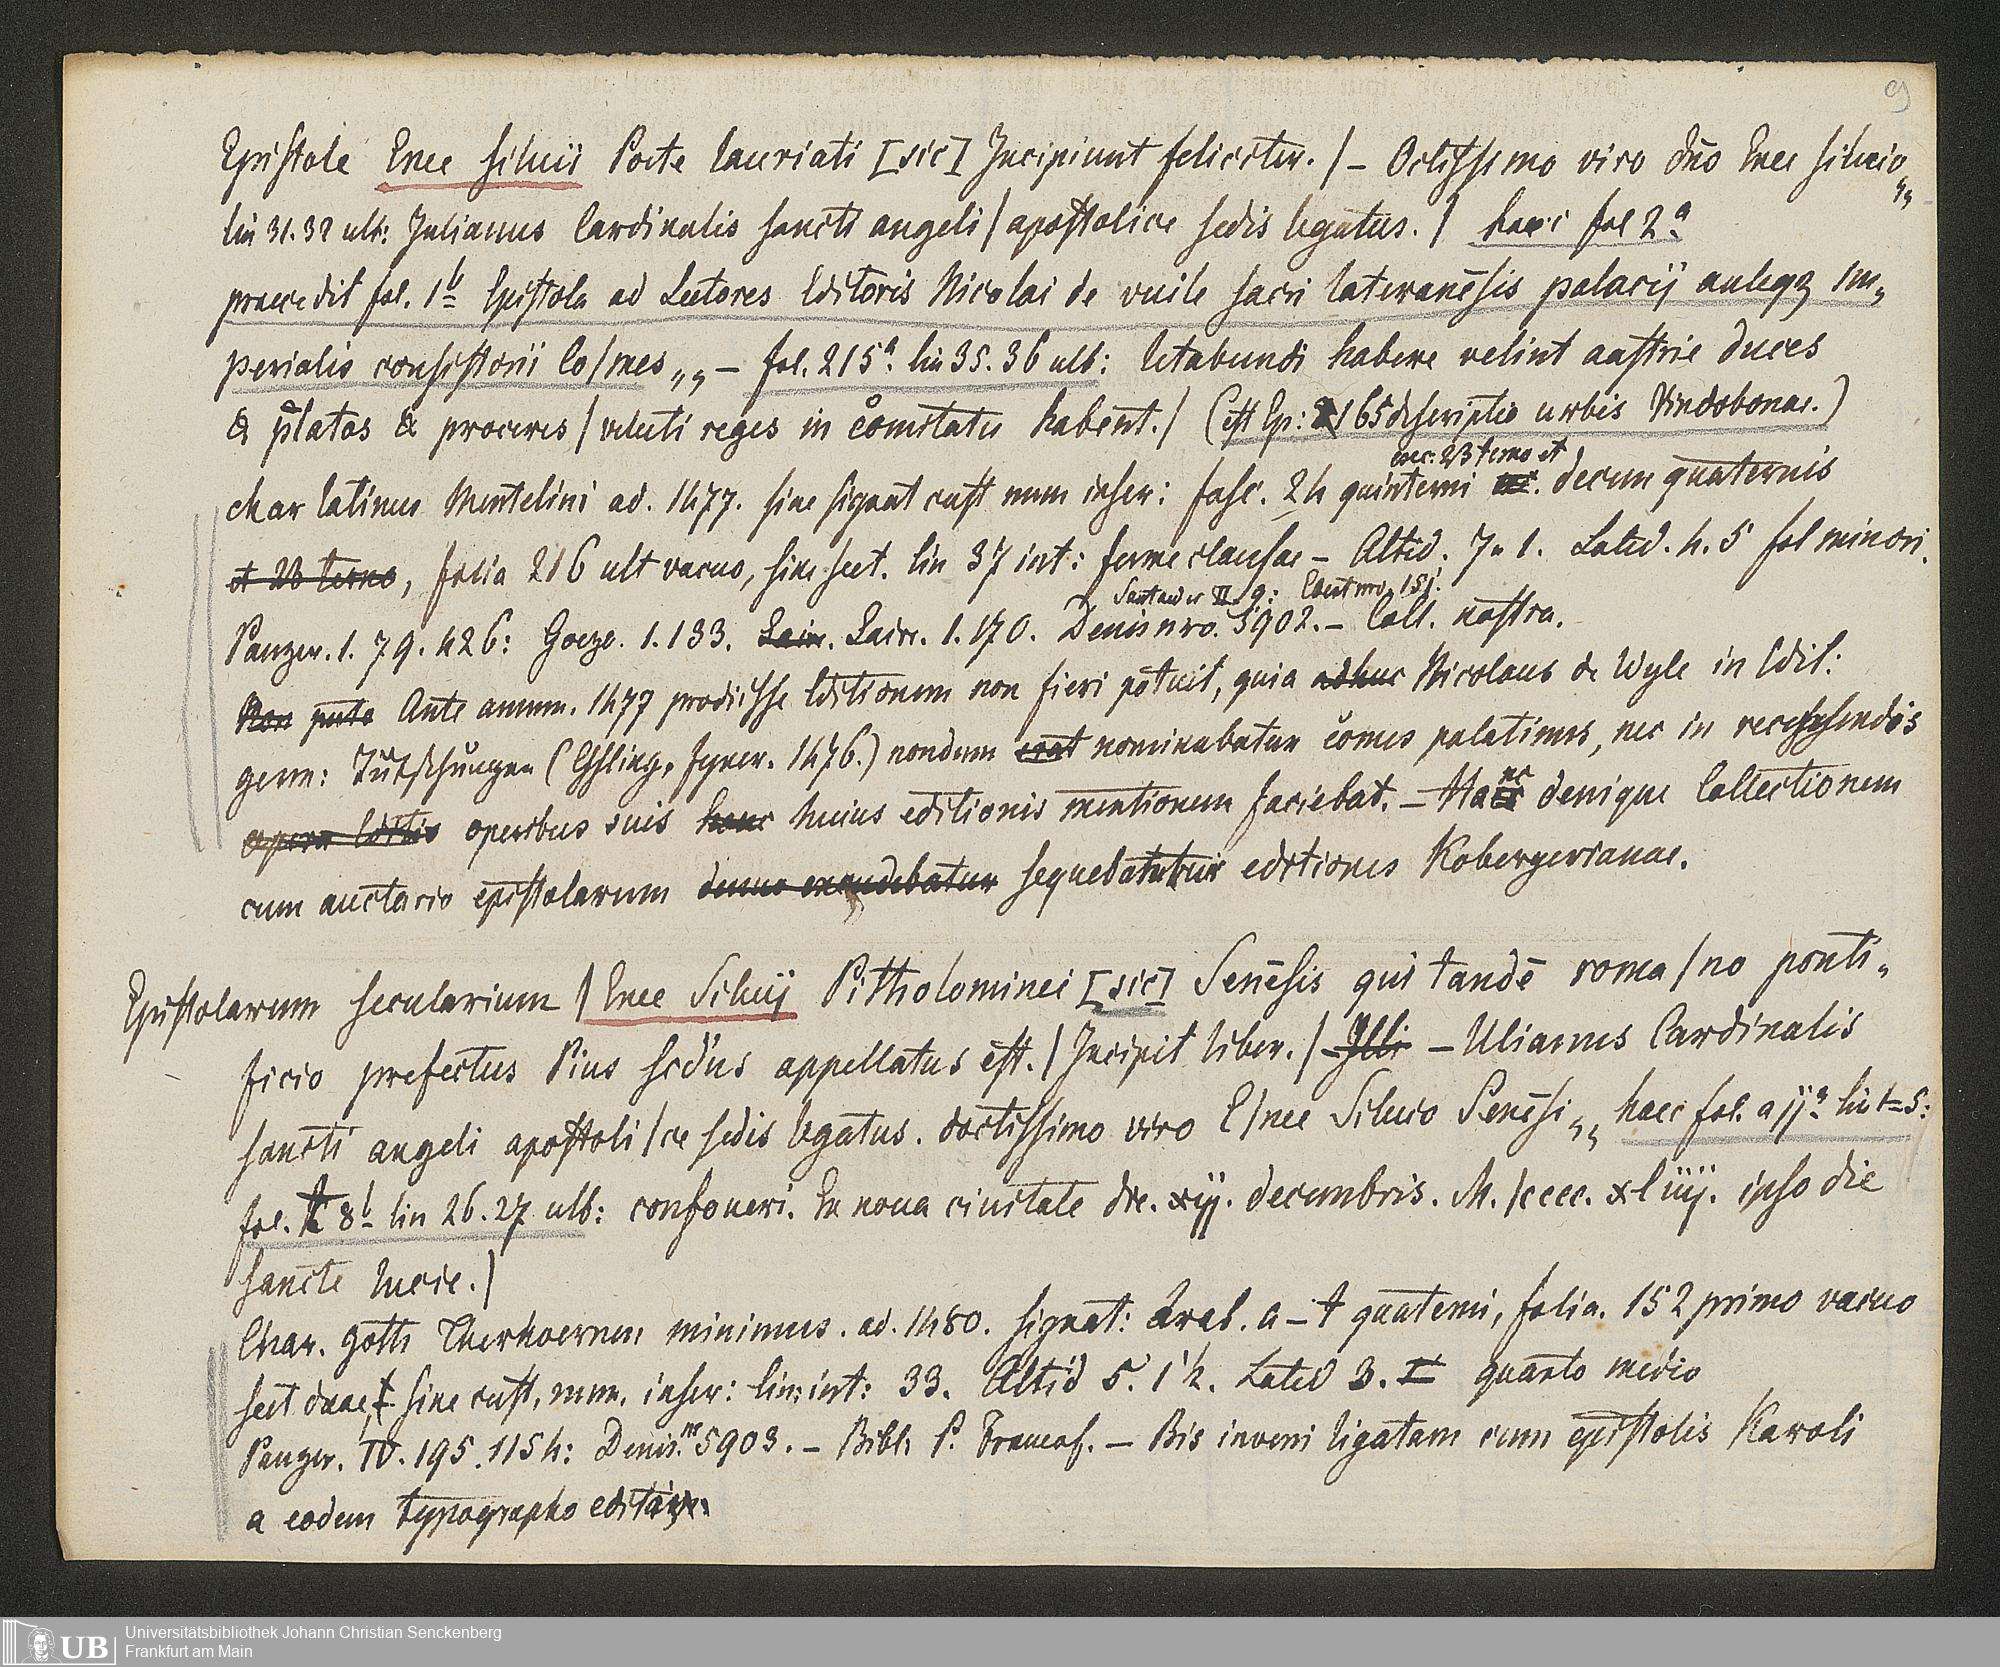 9
Epistole Enee siluii Poete lauriati [sic] Incipiunt feliciter. / – Octissimo viro dño Enee siluio„
lin 31. 32 ult: Julianus Cardinalis sancti angeli / apostolice sedis legatus. / haec fol 2a
praecedit fol. 1b Epistola ad Lectores Editoris Nicolai de vuile sacri lateranēsis palacij auleqz im„
perialis consistorii Co/mes „ – fol. 215a lin 35. 36 ult: letabundi habere velint austrie duces
& p̄latos & proceres / veluti reges in comitatu habent. / (est Ep: 165 descriptio urbis Vindobonae.)
exc. 23 terno et
char latinus Mentelini ad. 1477. sine signat cust num inscr: fasc. 24 quinterni decem quaternis
et 23 terno, folia 216 ult vacuo, sine sect. lin 37 int: ferme clausae – Altid. 7. 1. Latid. 4. 5 fol minori.
Santander II. 9: Ebert nro. 151.
Panzer. 1. 79. 426: Goeze. 1. 133. Lair. Laire. 1. 170. Denis nro. 5902. – Coll. nostra.
Non puto Ante annum. 1477 prodiisse Editionem non fieri potuit, quia adhuc Nicolaus de Wyle in Edit:
germ: Tütschungen (Essling, Fyner. 1476.) nondum erat nominabatur comes palatinus, nec in recensendis
opera editis operibus suis hanc huius editionis mentionem faciebat. – Hanc denique Collectionem
cum auctario epistolarum denuo excudebatur sequebantur editiones Kobergerianae.
Epistolarum secularium / Enee Siluij Pitholominei [sic] Senēsis qui tandē roma / no ponti„
ficio prefectus Pius scd'us appellatus est. / Incipit liber. / – Illi – Ulianus Cardinalis
sancti angeli apostoli / ce sedis legatus. doctissimo viro E/nee Siluio Senēsi „ haec fol. a ija lin 1–5:
fol. t 8b lin 26. 27 ult: confoueri. Ex noua ciuitate die. xij. decembris. M. / cccc. xliiij. ipso die
sancte lucie. /
Char. goth Therhoernen minimus. ad. 1480. signat: Arab. a – t quaterni, folia. 152 primo vacuo
sect duae, sine cust. num. inscr: lin: int: 33. Altid 5. 1½. Latid 3. I quarto medio
Panzer. IV. 195. 1154: Denis. nr 5903. – Bibl. P. Francof. – Bis inveni ligatam cum epistolis Karoli
a eodem typographo editis.
UB
Universitätsbibliothek Johann Christian Senckenberg
Frankfurt am Main